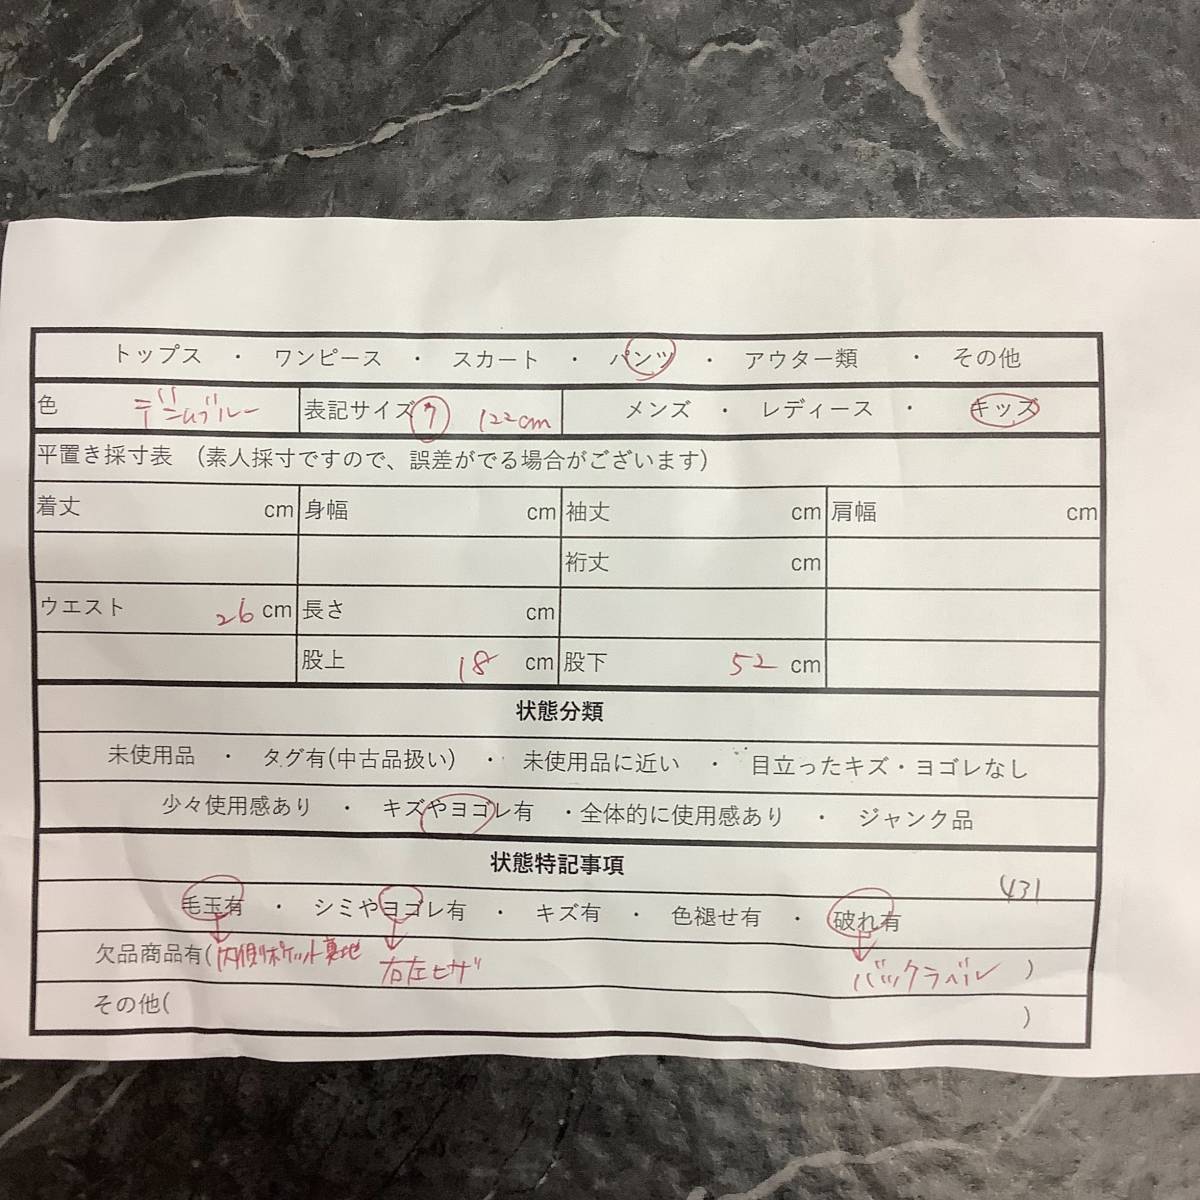 トップス ・ ワンピース ・ スカート ・ パンツ ・ アウター類 ・ その他
色 デニムブルー 表記サイズ 7 122cm メンズ ・ レディース ・ キッズ
平置き採寸表 (素人採寸ですので、誤差がでる場合がございます)
着丈 cm 身幅 cm 袖丈 cm 肩幅 cm
裄丈 cm
ウエスト 26 cm 長さ cm
股上 18 cm 股下 52 cm
状態分類
未使用品 ・ タグ有(中古品扱い) ・ 未使用品に近い ・ 目立ったキズ・ヨゴレなし
少々使用感あり ・ キズやヨゴレ有 ・全体的に使用感あり ・ ジャンク品
状態特記事項
431
毛玉有 ・ シミやヨゴレ有 ・ キズ有 ・ 色褪せ有 ・ 破れ有
欠品商品有( 内側ポケット裏地 右左ヒザ バックラベル )
その他( )